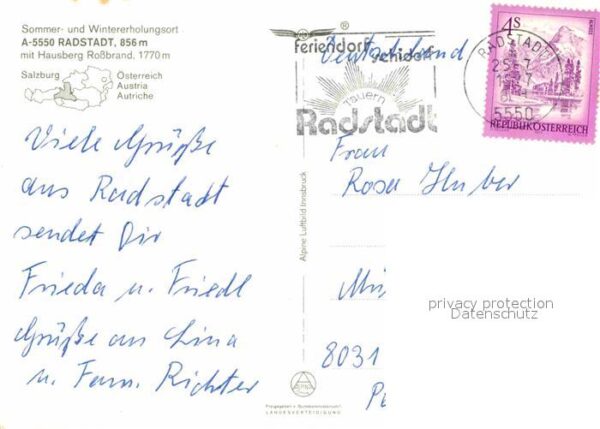 Sommer- und Wintererholungsort
A-5550 RADSTADT, 856 m
mit Hausberg Roßbrand, 1770 m
Salzburg
Österreich
Austria
Autriche
Viele Grüße
aus Radstadt
sendet Dir
Frieda u. Friedl
Grüße an China
u. Fam. Richter
Alpine Luftbild Innsbruck
LANDESVERTEIDIGUNG
feriendorf
schidorf
Tauern
Radstadt
Deutschland
4S
REPUBLIK ÖSTERREICH
RADSTADT
5550
Frau
Rosa Huber
8031
privacy protection
Datenschutz